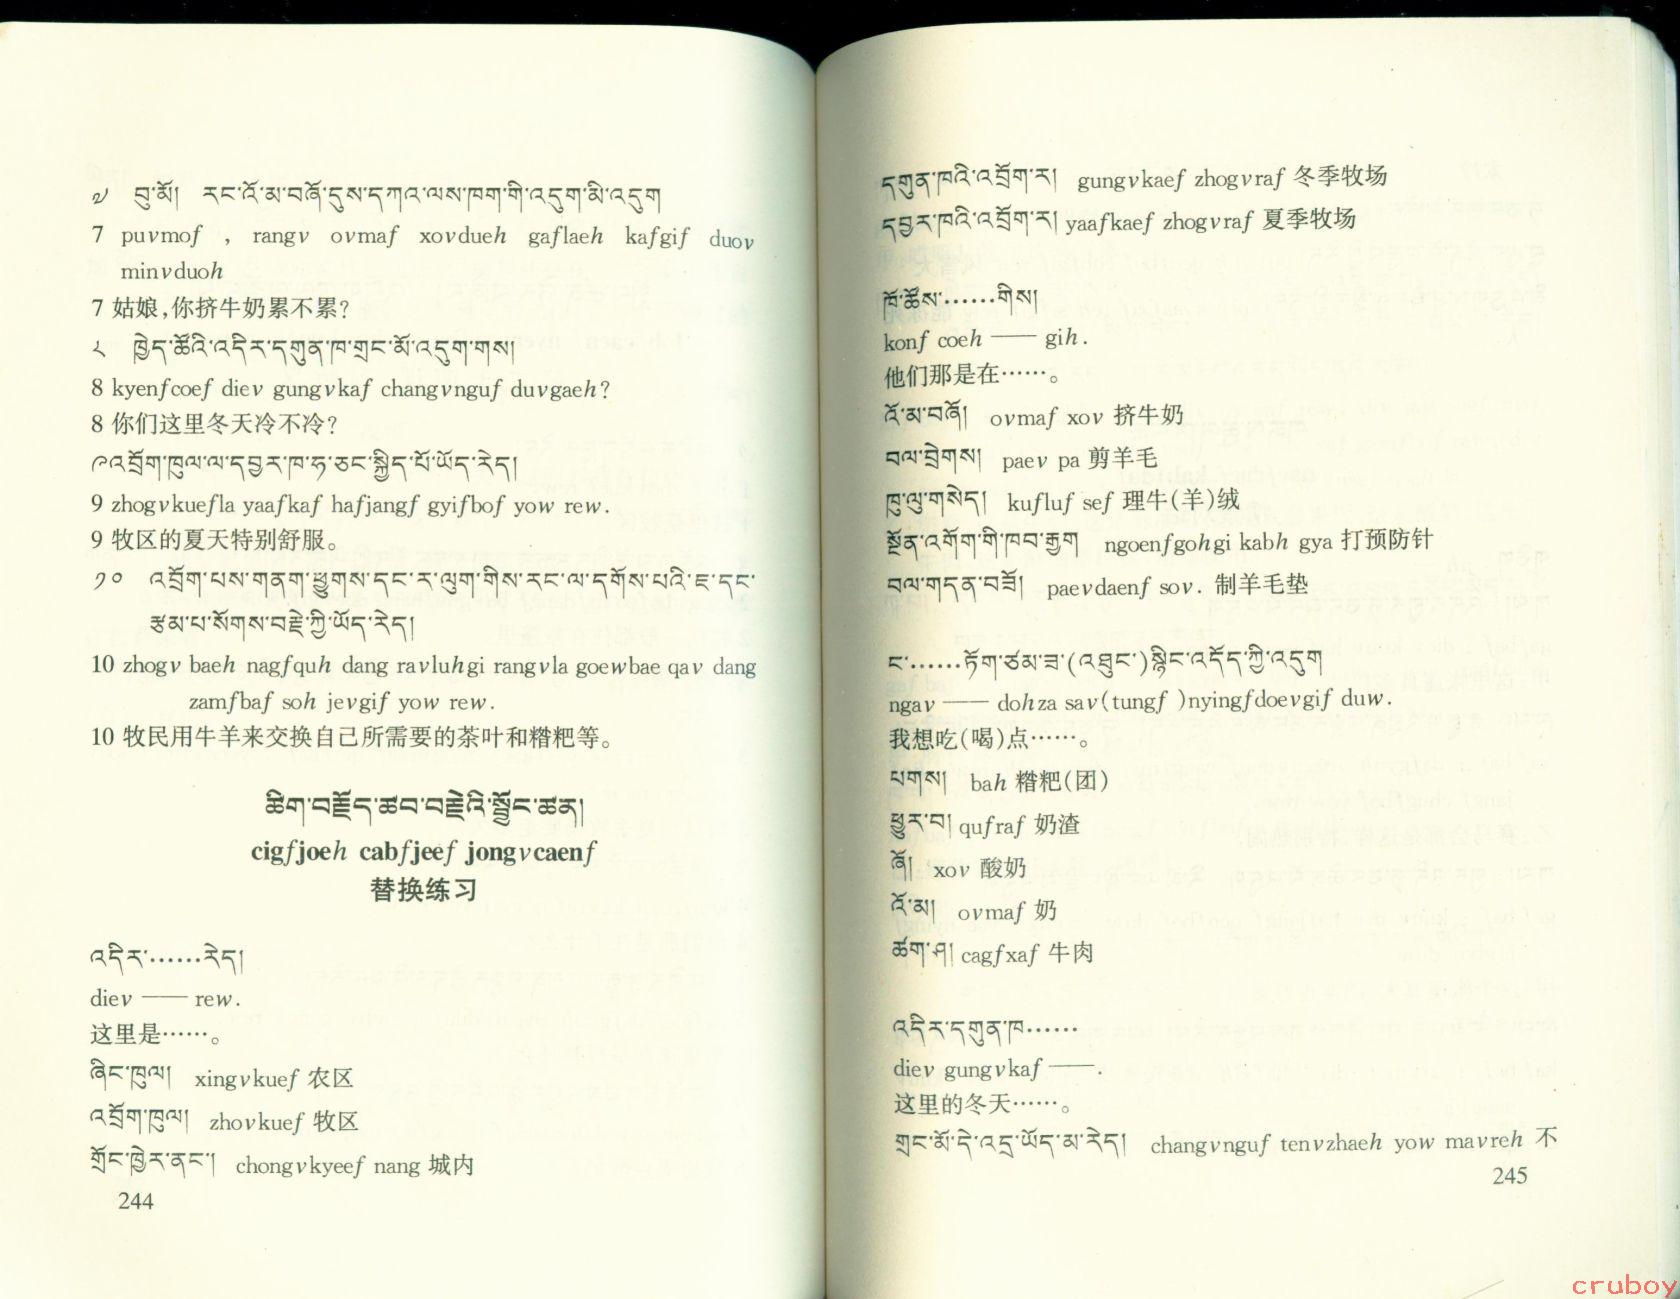 ༧ བུ་མོ། རང་འོ་མ་བཞོ་དུས་དཀའ་ལས་ཁག་གི་འདུག་མི་འདུག
7 puvmof , rangv ovmaf xovdueh gaflaeh kafgif duov
minvduoh
7 姑娘,你挤牛奶累不累?
༨ ཁྱེད་ཚོའི་འདིར་དགུན་ཁ་གྲང་མོ་འདུག་གས།
8 kyenfcoef diev gungvkaf changvnguf duvgaeh?
8 你们这里冬天冷不冷?
༩འབྲོག་ཁུལ་ལ་དབྱར་ཁ་ཧ་ཅང་སྐྱིད་པོ་ཡོད་རེད།
9 zhogvkuefla yaafkaf hafjangf gyifbof yow rew.
9 牧区的夏天特别舒服。
༡༠ འབྲོག་པས་གནག་ཕྱུགས་དང་ར་ལུག་གིས་རང་ལ་དགོས་པའི་ཇ་དང་
རྩམ་པ་སོགས་བརྗེ་ཀྱི་ཡོད་རེད།
10 zhogv baeh nagfquh dang ravluhgi rangvla goewbae qav dang
zamfbaf soh jevgif yow rew.
10 牧民用牛羊来交换自己所需要的茶叶和糌粑等。
ཚིག་བརྗོད་ཚབ་བརྗེའི་སྦྱོང་ཚན།
cigfjoeh cabfjeef jongvcaenf
替换练习
འདིར་……རེད།
diev —— rew.
这里是……。
ཞིང་ཁུལ། xingvkuef 农区
འབྲོག་ཁུལ། zhovkuef 牧区
གྲོང་ཁྱེར་ནང་། chongvkyeef nang 城内
244
དགུན་ཁའི་འབྲོག་ར། gungvkaef zhogvraf 冬季牧场
དབྱར་ཁའི་འབྲོག་ར། yaafkaef zhogvraf 夏季牧场
ཁོ་ཚོས་……གིས།
konf coeh —— gih.
他们那是在……。
འོ་མ་བཞོ། ovmaf xov 挤牛奶
བལ་བྲེགས། paev pa 剪羊毛
ཁུ་ལུ་གསེད། kufluf sef 理牛(羊)绒
སྔོན་འགོག་གི་ཁབ་རྒྱག ngoenfgohgi kabh gya 打预防针
བལ་གདན་བཟོ། paevdaenf sov. 制羊毛垫
ང་……ཏོག་ཙམ་ཟ་(འཐུང་)སྙིང་འདོད་ཀྱི་འདུག
ngav —— dohza sav(tungf )nyingfdoevgif duw.
我想吃(喝)点……。
པགས། bah 糌粑(团)
ཕྱུར་བ། qufraf 奶渣
ཞོ། xov 酸奶
འོ་མ། ovmaf 奶
ཚག་ཤ། cagfxaf 牛肉
འདིར་དགུན་ཁ……
diev gungvkaf ——.
这里的冬天……。
གྲང་མོ་དེ་འདྲ་ཡོད་མ་རེད། changvnguf tenvzhaeh yow mavreh 不
245
cruboy